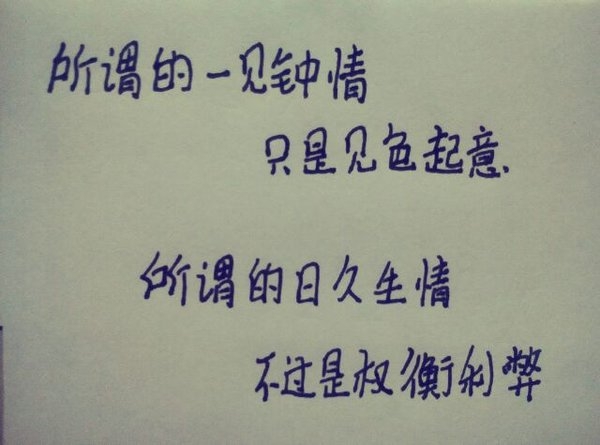 所谓的一见钟情
只是见色起意
所谓的日久生情
不过是权衡利弊